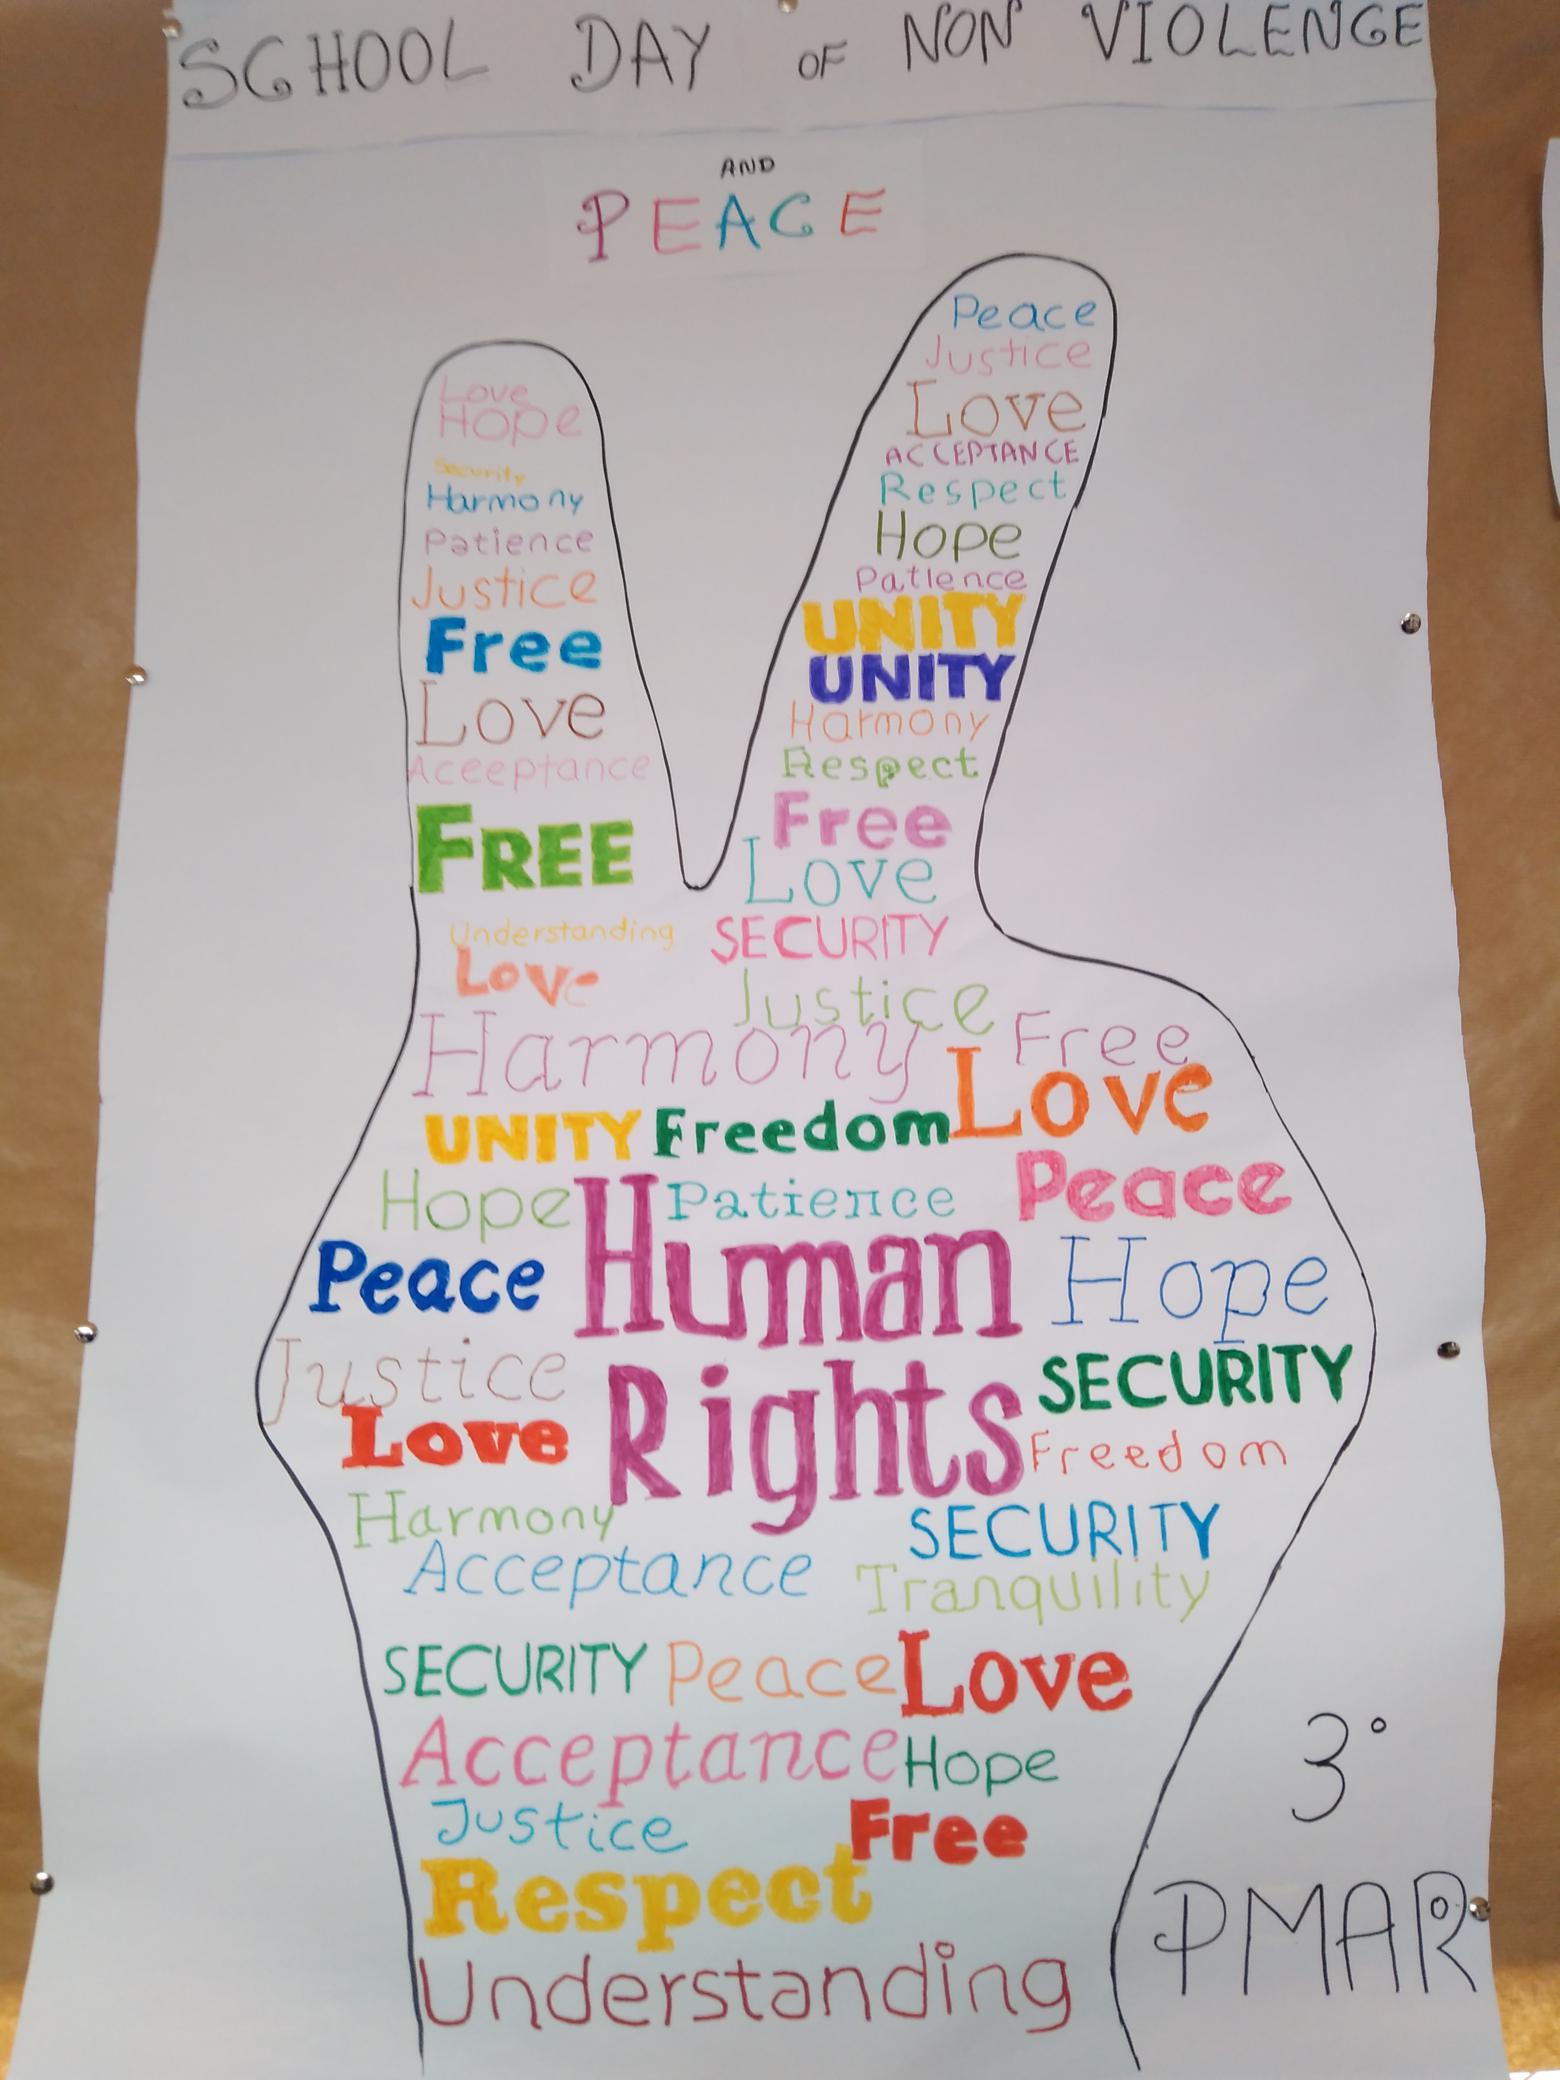 SCHOOL DAY OF NON VIOLENGE
AND
PEACE
Peace
Justice
Love
ACCEPTANCE
Respect
Hope
Patience
UNITY
UNITY
Harmony
Respect
Free
Love
SECURITY
Justice
Love
Hope
Security
Harmony
Patience
Justice
Free
Love
Aceeptance
FREE
Understanding
Love
Harmony Free
UNITY Freedom Love
Hope Patience Peace
Peace Human Hope
Justice Rights SECURITY
Love Freedom
Harmony SECURITY
Acceptance Tranquility
SECURITY Peace Love
Acceptance Hope
Justice Free
Respect
Understanding
3°
PMAR